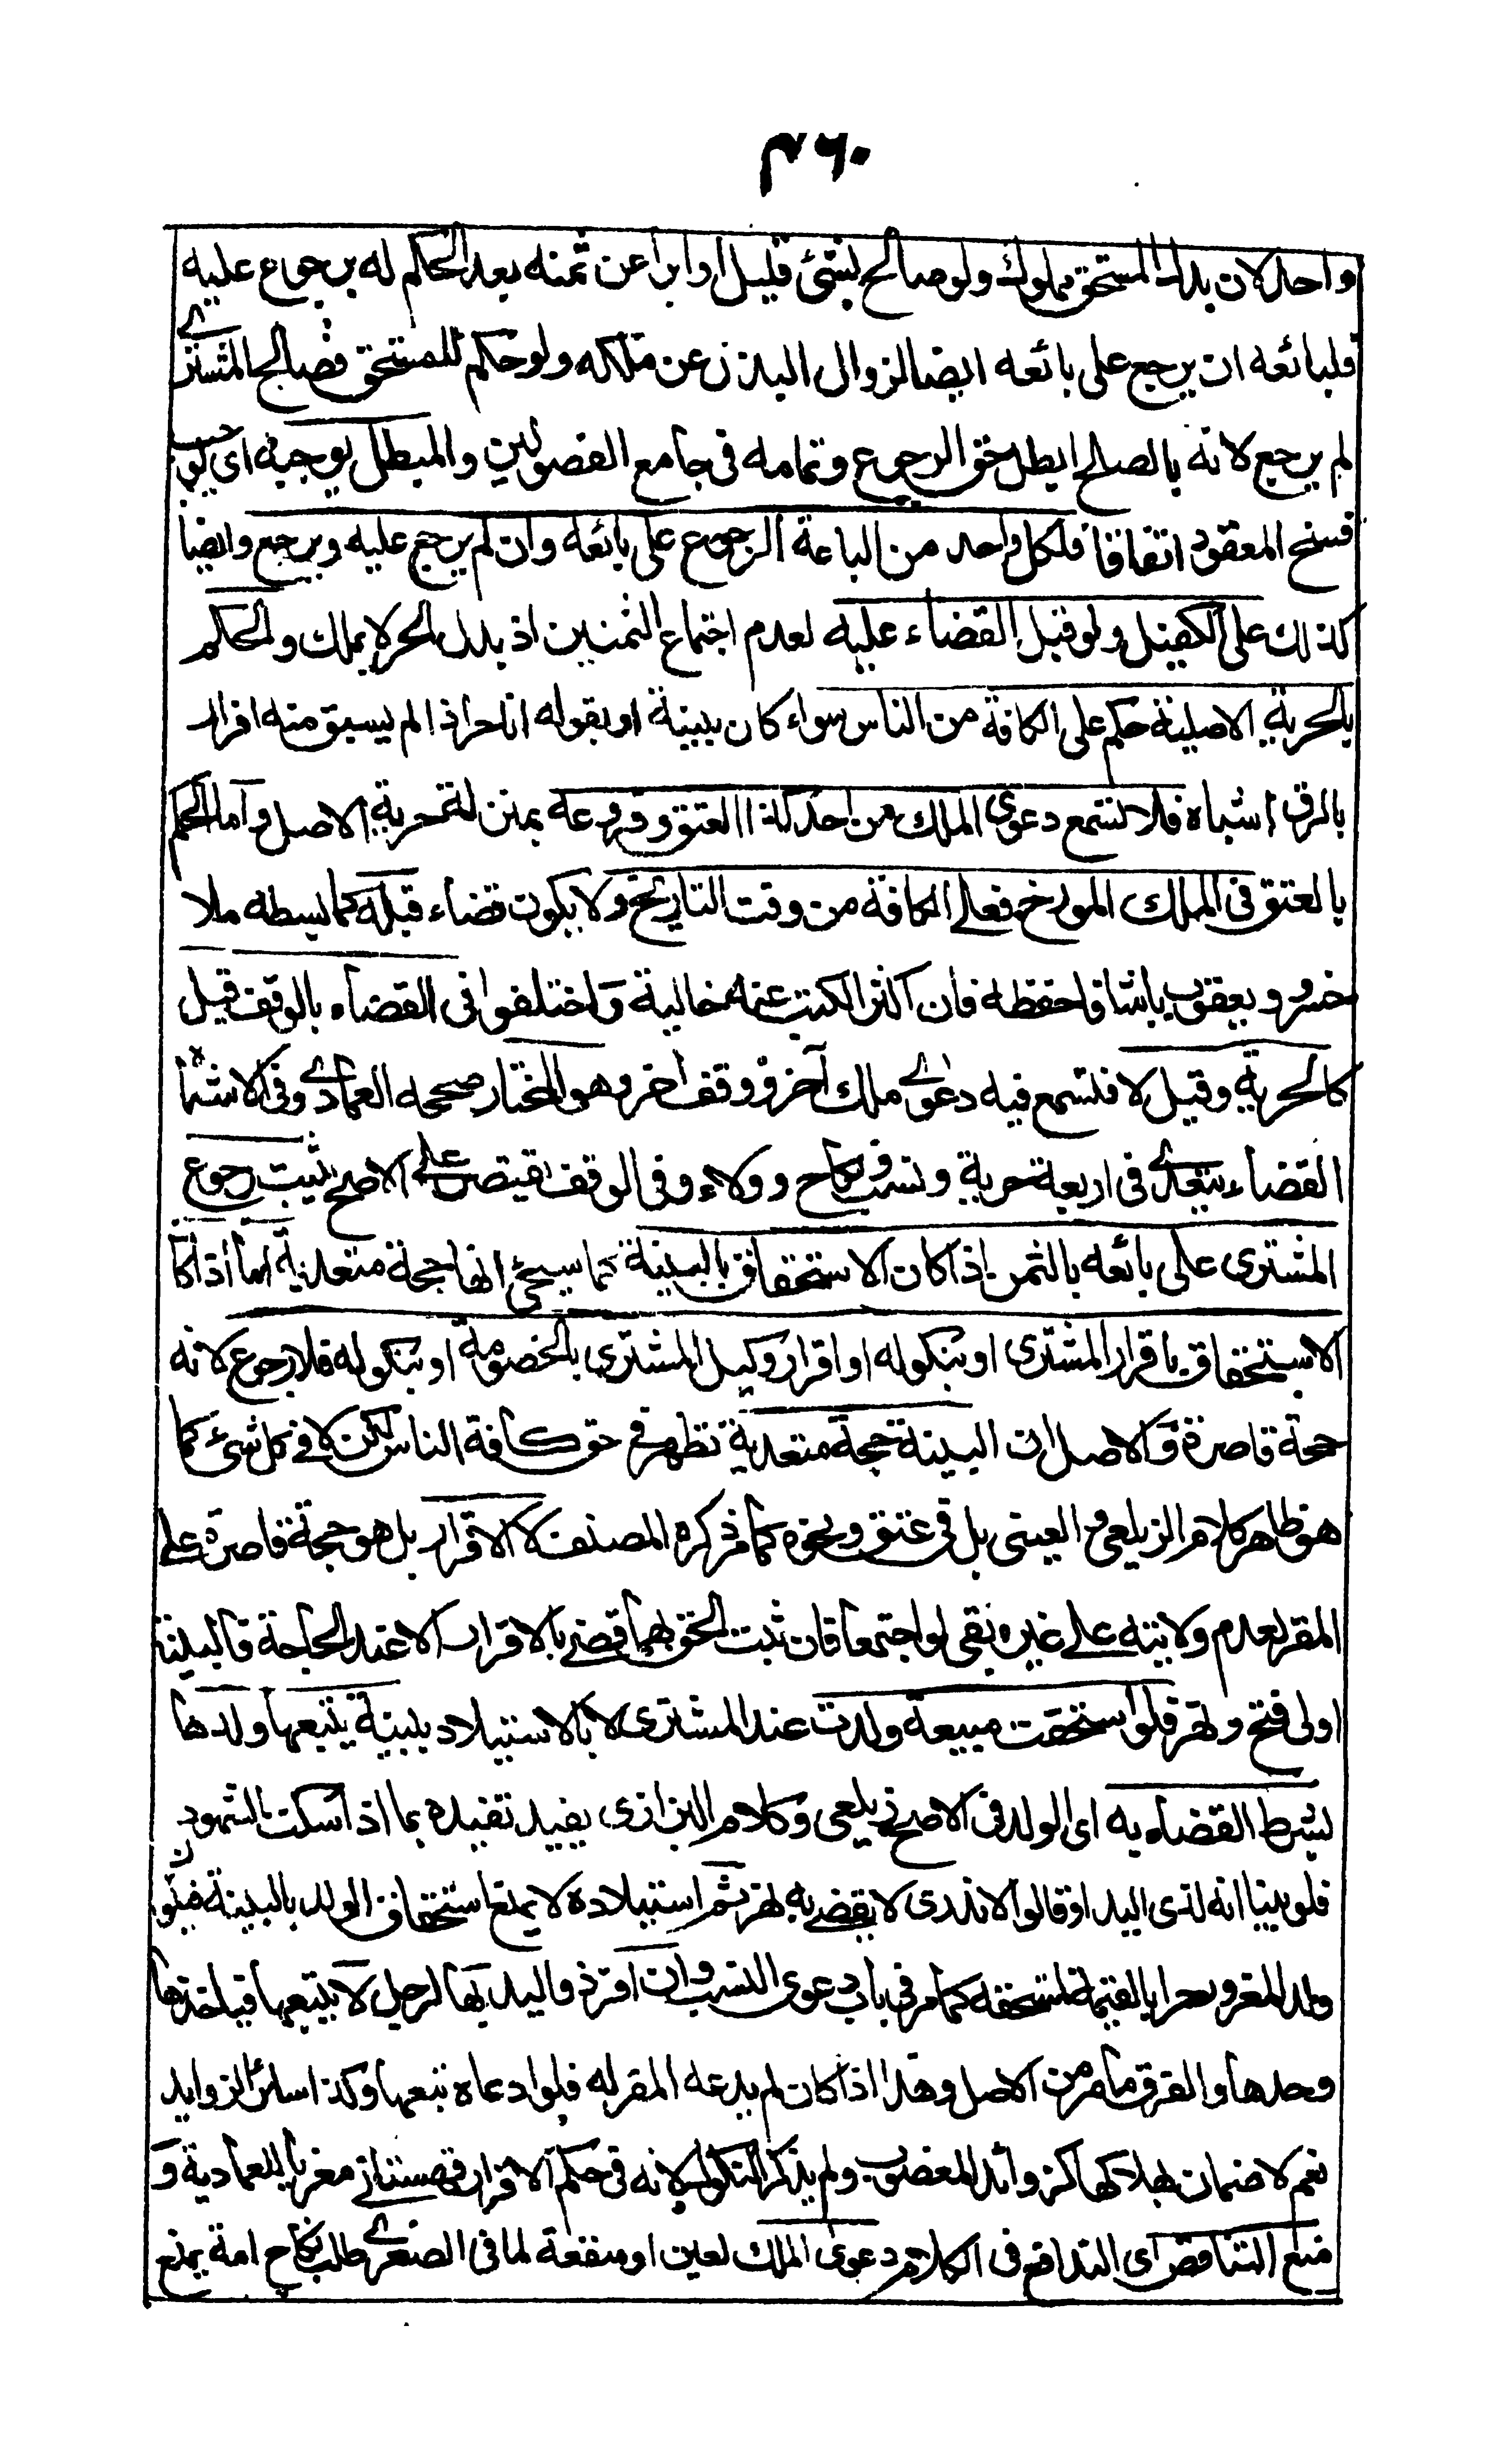 ٤٦٠
واحد لان بدل المستحق مملوك ولو صالح بشئ قليل او ابرأ عن ثمنه بعد الحكم له برجوع عليه
فلبائعه ان يرجع على بائعه ايضا لزوال البدل عن ملكه ولو حكم للمستحق فصالح المشترے
لم يرجع لانه بالصلح ابطل حق الرجوع وتمامه فى جامع الفصولين والمبطل يوجبه اى يوجب
فسخ العقود اتفاقا فلكل واحد من الباعة الرجوع على بائعه وان لم يرجع عليه ويرجع وايضا
كذلك على الكفيل ولو قبل القضاء عليه لعدم اجتماع الثمنين اذ بدل الحر لا يملك والحكم
بالحرية الاصلية حكم على الكافة من الناس سواء كان ببينة او بقوله انا حر اذا لم يسبق منه اقرار
بالرق اشباه فلا تسمع دعوى الملك من احد كذا العتق وفروعه بمنزلة حرية الاصل واما الحكم
بالعتق فى الملك المورخ فعلى الكافة من وقت التاريخ ولا يكون قضاء قبله كما بسطه ملا
خسرو ويعقوب باشا فاحفظه فان اكثر الكتب عنه خالية واختلفوا فى القضاء بالوقف قيل
كالحرية وقيل لا فتسمع فيه دعوے ملك آخر او وقف اخر وهو المختار صححه العمادے وفى الاشباه
القضاء يتعدے فى اربعة حرية ونسب ونكاح وولاء وفى الوقف يقتصر على الاصح يثبت رجوع
المشترى على بائعه بالثمن اذا كان الاستحقاق بالبينة كما سيجئ انها حجة متعدية اما اذا كا
الاستحقاق باقرار المشترى او بنكوله او اقرار وكيل المشترى بالخصومة او بنكوله فلا رجوع لانه
حجة قاصرة والاصل ان البينة حجة متعدية تظهر فى حق كافة الناس لكن لا فى كل شئ كما
هو ظاهر كلام الزيلعى والعينى بل فى عتق ونحوه كما مر ذكره المصنف لا الاقرار بل هو حجة قاصرة على
المقر لعدم ولايته على غيره بقى لو اجتمعا فان ثبت الحق بهما قضى بالاقرار الا عند الحاجة فالبينة
اولى فتح ونهر فلو استحقت مبيعة ولدت عند المشترى لا بالاستيلاد ببينة يتبعها ولدها
بشرط القضاء به اى الولد فى الاصح زيلعى وكلام البزازى يفيد تقييده بما اذا سكت الشهود
فلو بينا انه لذى اليد او قالوا لا ندرى لا يقضى به نهر ثم استيلاده لا يمنع استحقاق الولد بالبينة فيكون
ولد المغرور حرا بالقيمة لمستحقه كما مر فى باب دعوى النسب وان اقر ذو اليد بها لرجل لا يتبعها فياخذها
وحدها والفرق ما مر من الاصل وهذا اذا كان لم يدعه المقر له فلو ادعاه تبعها وكذا سائر الزوايد
نعم لا ضمان بهلاكها كزوائد المغصوب ولم يذكر النكول لانه فى حكم الاقرار قهستانى معزيا للعمادية و
منع التناقض اى التدافع فى الكلام دعوى الملك لعين او منفعة لما فى الصغرے طلب نكاح امة يمنع